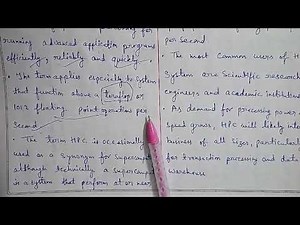 running advanced application programs
efficiently, reliably and quickly.
• The term applies especially to system
that function above a teraflop or
10^12 floating point operations per
Second
• The term HPC is occasionally
used as a synonym for Supercomputer
although technically a supercomputer
is a system that perform at or near
per Second
• The most Common users of H
System are Scientific research
engineers and academic institution
• As demand for processing power a
speed grows, HPC will likely inte
business of all sizes, particular
for transaction processing and data
warehouse